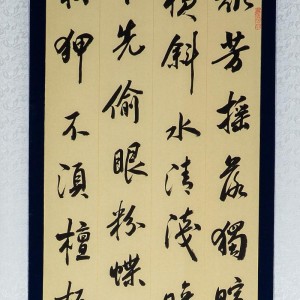 芳搖落獨暄
橫斜水清淺暗
先偷眼粉蝶
狎不須檀板